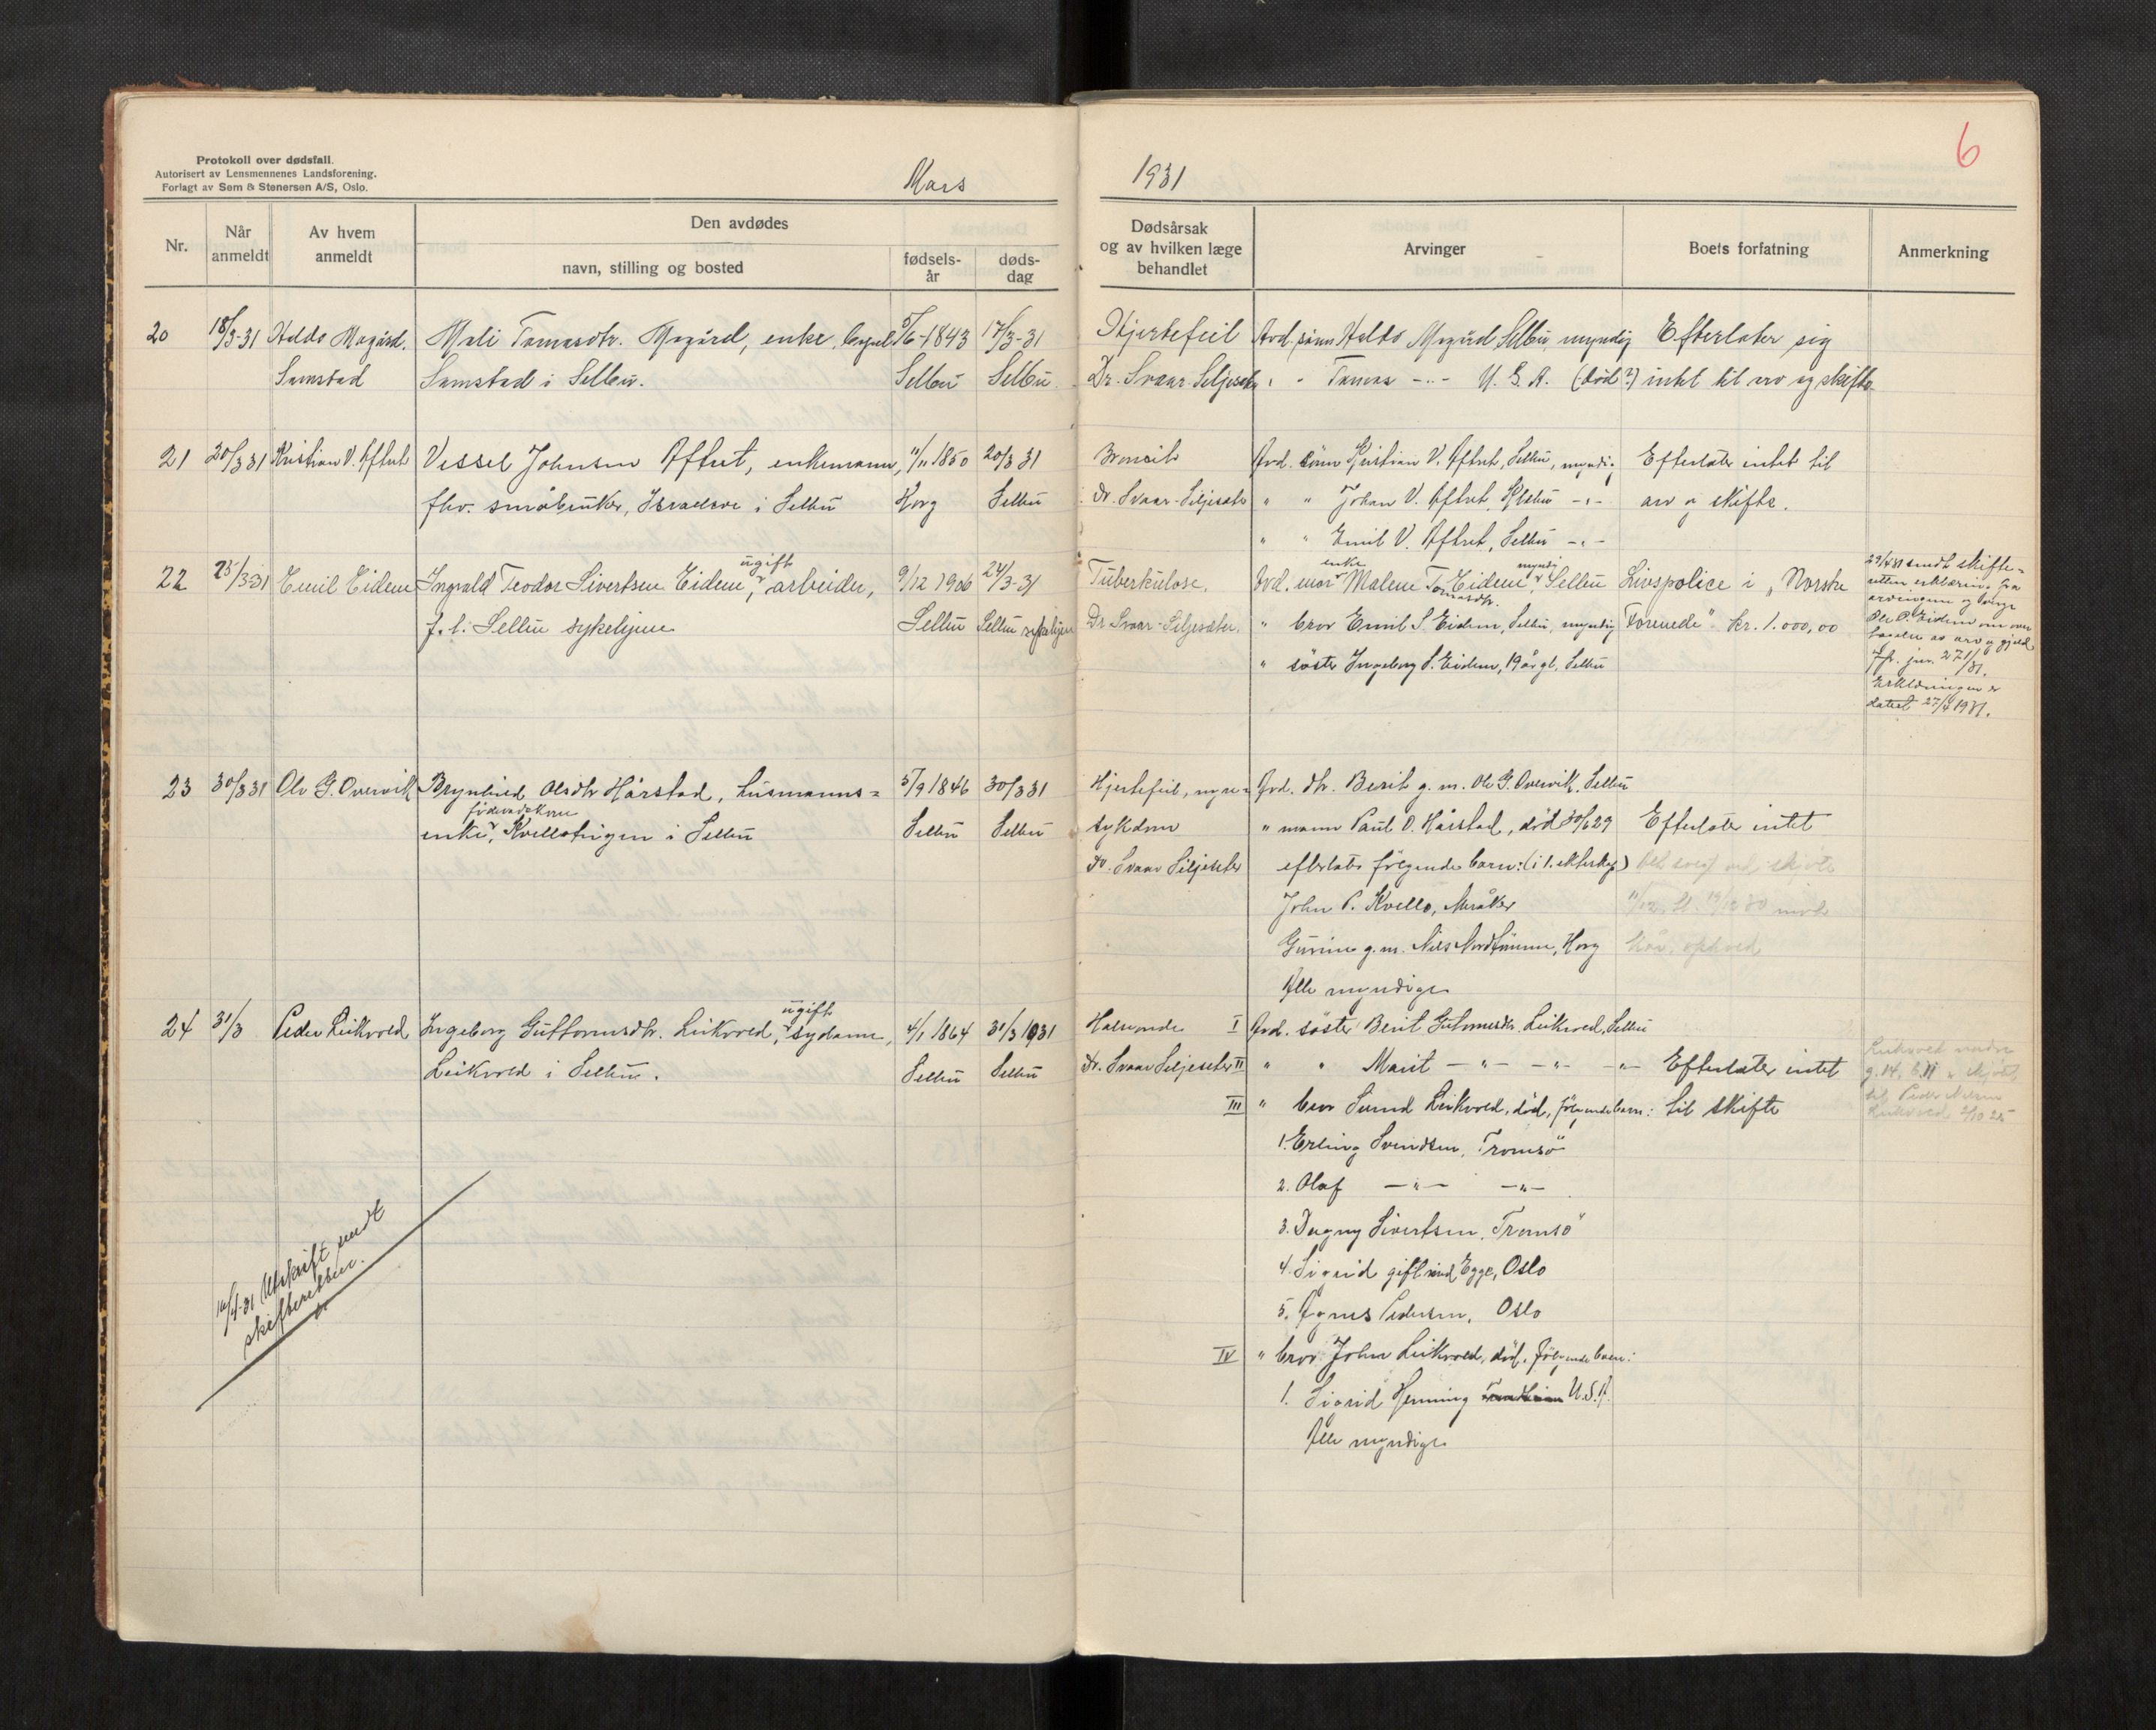 Protokoll over dødsfall.
Autorisert av Lensmennenes Landsforening.
Forlagt av Sem & Stenersen A/S, Oslo.
Mars
1931
6
Nr.
Når anmeldt
Av hvem anmeldt
Den avdødes
navn, stilling og bosted
fødsels-år
døds-dag
Dødsårsak og av hvilken læge behandlet
Arvinger
Boets forfatning
Anmerkning
20 18/3-31 Haldo Mogård. Mali Tomasdtr. Mogård, enke, 5/6-1843 17/3-31 Hjertefeil Avd. sønn Haldo Mogård Selbu, myndig Efterlater sig
Samstad Samstad i Selbu. Selbu Selbu Dr. Svaar-Seljesæter " " Tomas -"- U.S.A. (død?) intet til arv og skifte
21 20/3 31 Kristian V. Aftret Vessel Johnsen Aftret, enkemann, 11/11 1850 20/3 31 Avd. sønn Kristian V. Aftret, Selbu, myndig Efterlater intet til
fhv. småbruker, i Selbu Horg Selbu Dr. Svaar-Seljesæter " " Johan V. Aftret, Klæbu -"- arv og skifte.
" " Emil V. Aftret, Selbu -"-
ugift enke myndig
22 25/3-31 Emil Eidem Ingvald Teodor Sivertsen Eidem, arbeider, 9/12 1906 24/3-31 Tuberkulose. Avd. mor Malene Tomasdtr. Eidem, Selbu Livspolice i "Norske
f.t. Selbu sykehjem Selbu Selbu sykehjem Dr. Svaar-Seljesæter. " bror Emil S. Eidem, Selbu, myndig Forenede" kr. 1.000,00
" søster Ingeborg S. Eidem, 19 år gl., Selbu
29/4 31 sendt skifte-
retten erklæring fra
arvingene og verge
Ole P. Eidem om over
tagelse av arv og gjeld
Jfr. jur. 271/31.
Erklæringen er
datert 27/4 1931.
23 30/3 31 Ole G. Overvik Brynhild Olsdtr Hårstad, husmanns= 5/9 1846 30/3 31 Hjertefeil, nyre= Avd. dtr. Berit g.m. Ole G. Overvik, Selbu
enke, føderådskone Kvellohaugen i Selbu Selbu Selbu sykdom " mann Paul O. Hårstad, død 30/6 29 Efterlater intet
Dr. Svaar Seljesæter efterlater følgende barn: (i 1. ekteskap)
John P. Kvello, Meråker
Gurine g.m. Nils Nordtømme, Horg
Alle myndige
ugift
24 31/3 Peder Leikvold Ingeborg Guttormsdtr. Leikvold, sydame, 4/1 1864 31/3 1931 I Avd. søster Berit Guttormsdtr. Leikvold, Selbu
Leikvold i Selbu. Selbu Selbu Dr. Svaar Seljesæter II " " Marit -"- -"- -"- Efterlater intet
III " bror Svend Leikvold, død, følgende barn: til skifte
1. Erling Svendsen, Tromsø
2. Olaf -"- -"-
3. Dagny Sivertsen, Tromsø
4. Sigrid gift med Egge, Oslo
5. Agnes Pedersen, Oslo
IV " bror John Leikvold, død, følgende barn:
1. Sigrid Henning Trondheim U.S.A.
Alle myndige
10/4-31 Utskrift sendt
skifteretten.